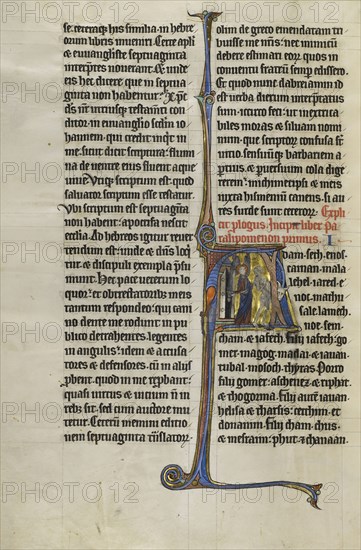 se. cetera his similia in hebre
orum libris inueniri. Certe apli
& euuangliste septuaginta
interptes nouerant. & un
eis hec dicere que in septua
ginta non habentur. Xpc
dns nr utriusq testamti con
ditor in euuanglio scdm io
hannem. qui credit inqt in
me. sicut dicit scriptura: flumi
na de uentre eius fluent aque
uiue. Utiq scriptum est. quod
saluator scriptum esse testatur.
Vbi scriptum est septuaginta
non habent: apocrifa nescit
ecclia. Ad hebreos igitur reuer
tendum est: unde & dns loqt
ur. & discipuli exempla psu
munt. Hec pace ueterum lo
quor: & obtrectatorib; meis
tantum respondeo: qui cani
no dente me rodunt. in publi
co detrahentes. legentes
in angulis. idem & accusa
tores & defensores. cum in aliis
pbent. quod in me rephant:
quasi uirtus & uitium n in
reb; sit. sed cum auctore mu
tetur. Ceterum memini editio
nem septuaginta tnslator
olim de greco emendatam tri
buisse me nris: nec inimicum
debere estimari eorum. quos in
conuentu fratrum semp edissero.
Et quod nunc dabreiamin id
est uerba dierum interptatus
sum. idcirco feci: ut inextrica
biles moras & siluam nomi
num. que scriptorum confusa st
uitio. sensuumq barbariem a
ptius. & p uersuum cola dige
rerem: michimetipsi & meis
iuxta hismenium canens. si au
res surde sunt ceterorum. Expli
cit plogus. Incipit liber pa
ralipomenon primus. I
Adam. seth. enos.
cainan. mala
lehel. iared. e
noc. mathu
sale. lamech.
noe. sem.
cham. & iafeth. filii iafeth. go
mer. magog. madai. & iauan.
tubal. mosoch. thyras. Porro
filii gomer. aschenez. & riphat.
& thogorma. Filii autem iauan.
helisa. & tharsis. cethim. et
donanim. Filii cham. chus.
& mesraim. phut. & chanaan.